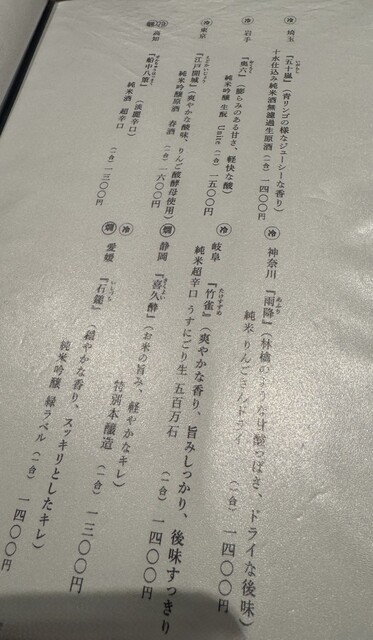 冷 埼玉
『五十嵐』(青リンゴの様なジューシーな香り)
十水仕込み純米酒無濾過生原酒(一合)一四〇〇円
冷 岩手
『奥六』(膨らみのある甘さ、軽快な酸)
純米吟醸 生酛 Unite(一合)一五〇〇円
冷 東京
『江戸開城』(爽やかな酸味、りんご酸酵母使用)
純米吟醸原酒 春酒(一合)一六〇〇円
高知
『船中八策』(淡麗辛口)
純米酒 超辛口(一合)一三〇〇円
冷 神奈川
『雨降』(林檎のような甘酸っぱさ、ドライな後味)
純米 りんごさんドライ(一合)一四〇〇円
冷 岐阜
『竹雀』(爽やかな香り、旨みしっかり、後味すっきり)
純米超辛口 うすにごり生 五百万石(一合)一四〇〇円
燗 静岡
『喜久酔』(お米の旨み、軽やかなキレ)
特別本醸造(一合)一三〇〇円
冷 燗 愛媛
『石鎚』(穏やかな香り、スッキリとしたキレ)
純米吟醸 緑ラベル(一合)一四〇〇円